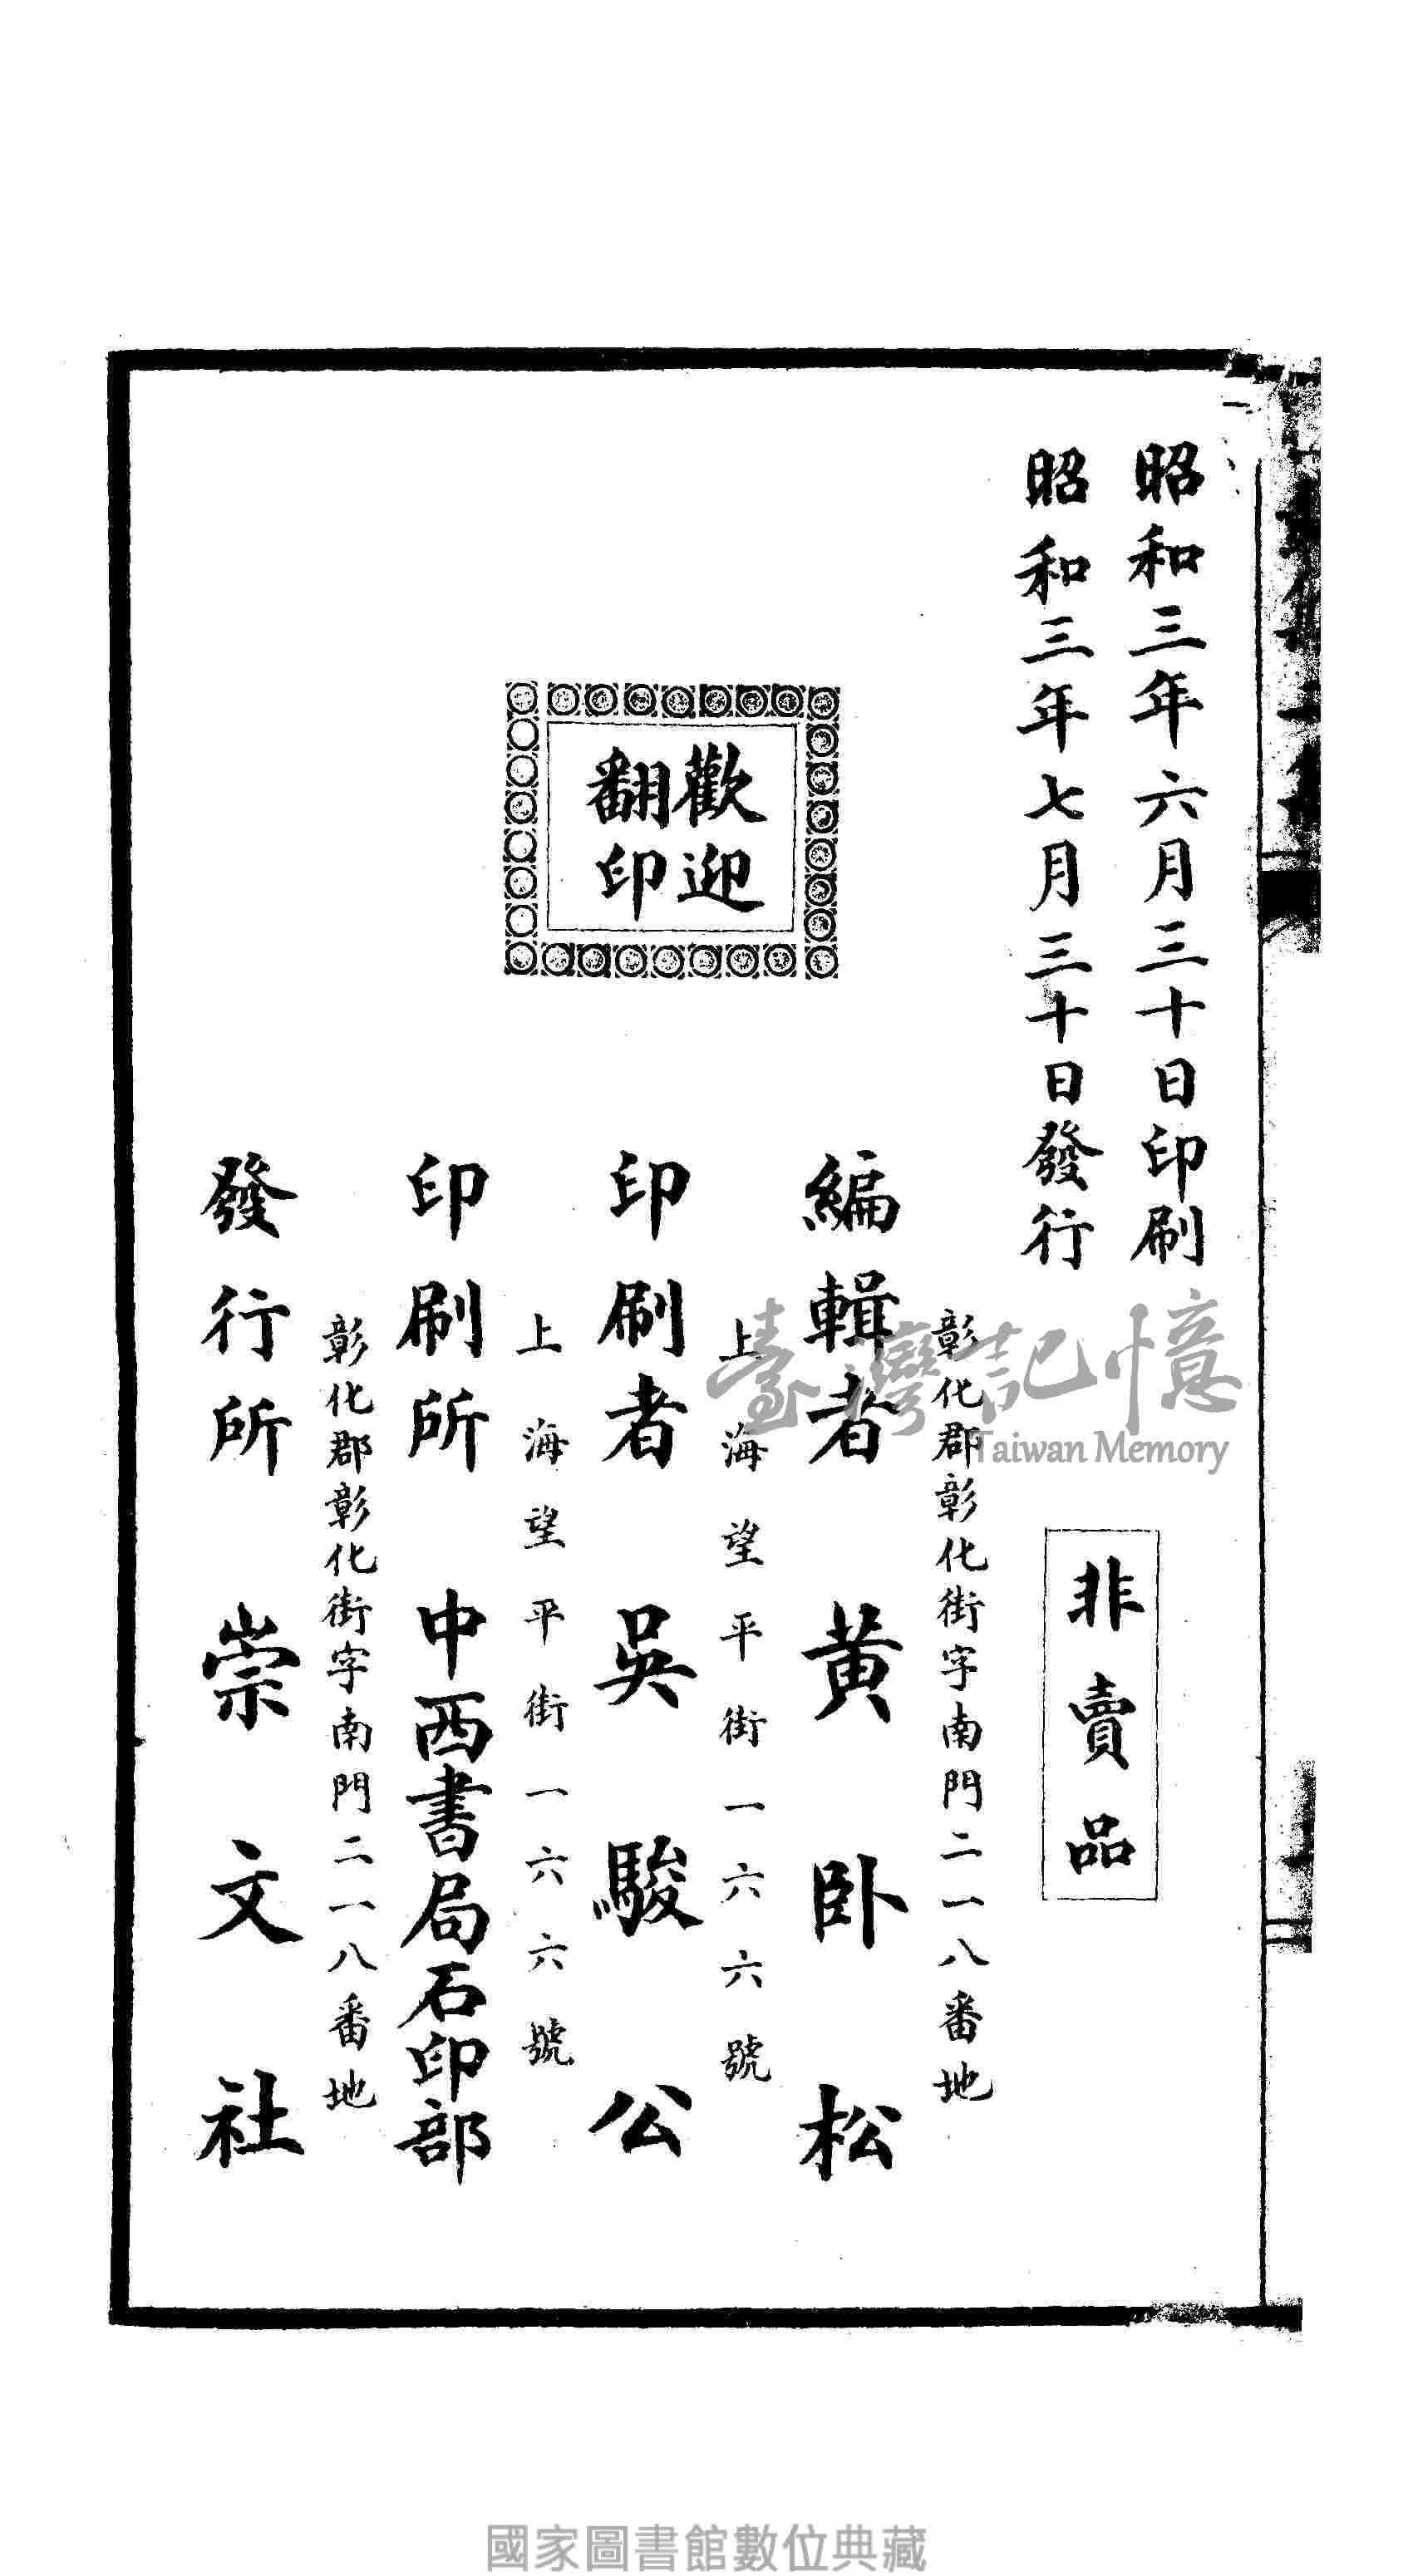 昭和三年六月三十日印刷
昭和三年七月三十日發行
非賣品
歡迎
翻印
彰化郡彰化街字南門二一八番地
編輯者 黄卧松
上海望平街一六六號
印刷者 吳駿公
上海望平街一六六號
印刷所 中西書局石印部
彰化郡彰化街字南門二一八番地
發行所 崇文社
臺灣記憶
Taiwan Memory
國家圖書館數位典藏